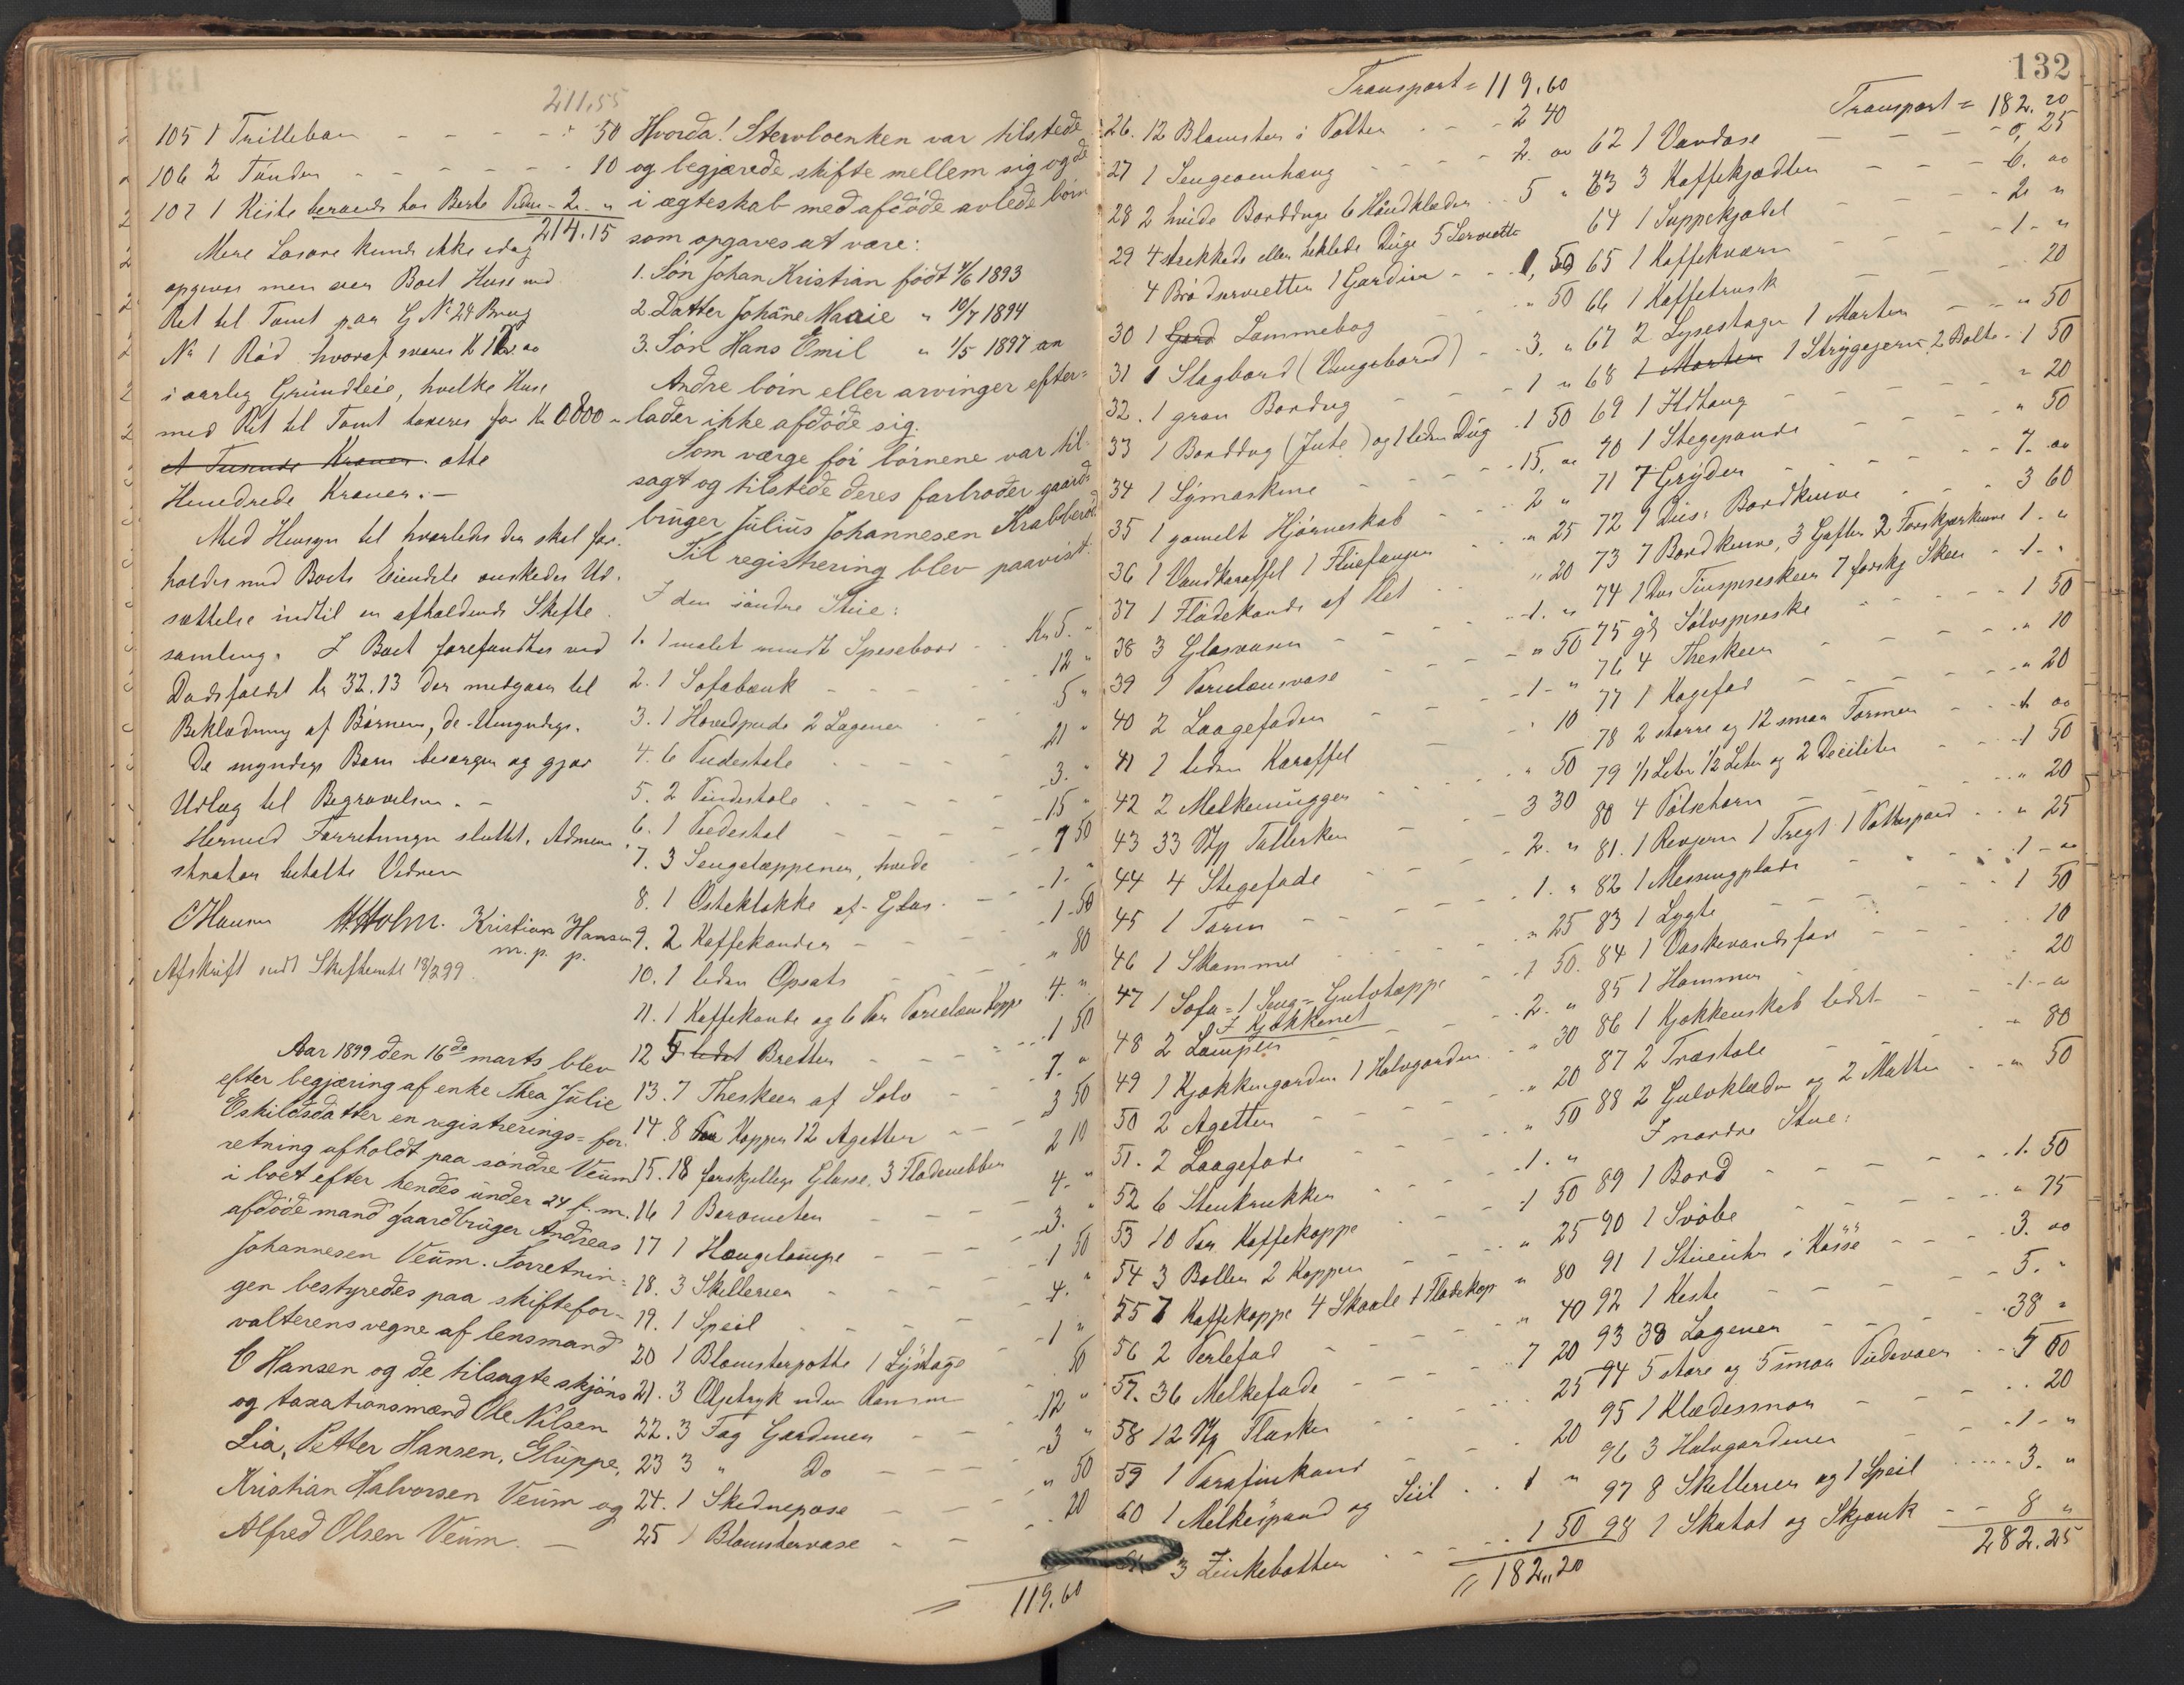 211.55
105 1 Trillebør - - - - " 50
106 2 Tønder - - - - - " 10
107 1 Kiste beroende hos Berte Peders - 2. "
214.15
Mere Løsøre kunde ikke idag
opgives men over Boet Huse med
Ret til Tomt paa G. No 24 Brug
No 1 Rød hvoraf svares K 12.00
i aarlig Grundleie, hvilke Huse
med Ret til Tomt taxeres for Kr 0800 "
Et Tusende Kroner. otte
Hundrede Kroner. -
Med Hensyn til hvorledes der skal for-
holdes med Boets Eiendele ønskedes Ud-
sættelse indtil en afholdende Skifte
samling. I Boet forefandtes ved
Dødsfaldet kr 32.13 der medgaar til
Beklædning af Børnene, de Umyndige.
De myndige Børn besørger og gjør
Udlæg til Begravelsen. -
Hermed Forretningen sluttet. Admini
strator betalte Vidnerne
C Hansen H. Holm. Kristian Hansen
m. p. p.
Afskrift sendt Skifteretten 18/2 99
Aar 1899 den 16de marts blev
efter begjæring af enke Thea Julie
Eskildsdatter en registrerings= for-
retning afholdt paa søndre Veum
i boet efter hendes under 24 f. m.
afdøde mand gaardbruger Andreas
Johannesen Veum. Forretnin=
gen bestyredes paa skiftefor-
valterens vegne af lensmand
C Hansen og de tilsagte skjøns
og taxationsmænd Ole Nilsen
Lia, Petter Hansen, Gluppe,
Kristian Halvorsen Veum og
Alfred Olsen Veum. -
Hvorda! Stervboenken var tilstede
og begjærede skifte mellem sig og de
i ægteskab med afdøde avlede børn
som opgaves at være:
1. Søn Johan Kristian født 4/6 1893
2. Datter Johane Marie " 10/7 1894
3. Søn Hans Emil " 1/5 1897
Andre børn eller arvinger efter=
lader ikke afdøde sig.
Som værge for børnene var til-
sagt og tilstede deres farbroder gaard-
bruger Julius Johannesen Krabberød
Til registrering blev paavist:
I den søndre Stue:
1. 1 malet rundt Spisebord - - Kr 5. "
2. 1 Sofabænk - - - - 12 "
3. 1 Hovedpude 2 Lagener - - 5 "
4. 6 Pudestole - - - - 21 "
5. 2 Pindestole - - - - 3. "
6. 1 Piedestal - - - - 15 "
7. 3 Sengetæppener, hvide - - 7 50
8. 1 Osteklokke af Glas - - 1. "
9. 2 Kaffekander - - - 1 50
10. 1 liden Opsats - - - " 80
11. 1 Kaffekande og 6 Par Porcelænskoppe 4. "
12 5 ledet Bretter - - - 1 50
13. 7 Theskeer af Sølv - - 7. "
14. 8 Koppen 12 Agetter - - 3 50
15. 18 forskjellige Glasse, 3 Flødenebber 2 10
16 1 Barometer - - - 4. "
17 1 Hængelampe - - - 3. "
18. 3 Skellerier - - - 1 50
19. 1 Speil - - - - 4. "
20 1 Blomsterpotte 1 Lysstage - 1 "
21. 3 Oljetryk uden Ramme - 50
22. 3 Fag Gardiner - - 12 "
23 3 " Do - - - 3 "
24. 1 Skednepose - - - " 50
25 1 Blomstervase - - - 20
= 119.60
132
Transport = 119.60
26. 12 Blomster i Potter - - - 2 40
27 1 Sengeomhæng - - - - 2. oo
28 2 hvide Bordduge 6 Haandklæder - - 5 "
29 4 strekkede eller heklede Duge 5 Servietter
4 Brødservietter 1 Gardin - - 1, 50
30 1 Gard Lommebog - - " 50
31 1 Slagbord (Vingebord) - - 3. "
32. 1 grøn Bordug - - - 1 "
33 1 Borddug (Jute) og 1 liden Dug 1 50
34 1 Symaskine - - - - 15, oo
35 1 gamelt Hjørneskab - - - 2 "
36 1 Vandkaraffel 1 Fluefanger - " 25
37 1 Flødekande af Plet - - " 20
38 3 Glasvaser - - - 1. "
39 1 Porcelænsvase - - - " 50
40 2 Laagefader - - - 1 - "
41 1 liden Karaffel - - - " 10
42 2 Melkemugger - - - " 50
43 33 Stp Tallerken - - - 3 30
44 4 Stegefade - - - 2. "
45 1 Tarin - - - - 1. "
46 1 Skammel - - - - " 25
47 1 Sofa= 1 Seng= Gulvtæppe - - 1 50.
I Kjøkkenet
48 2 Lamper - - - - 2. "
49 1 Kjøkkengardin 1 Halvgardin - - " 30
50 2 Agetter - - - - " 20
51. 2 Laagefade - - - " 50
52 6 Stenkrukker - - - 1. "
53 10 Par Kaffekoppe - - - 1 50
54 3 Boller 2 Kopper - - - " 25
55 7 Kaffekoppe 4 Skaale 1 Flødekop " 80
56 2 Perlefad - - - " 40
57. 36 Melkefade - - - 7 20
58 12 Stp Flasker - - - 25
59 1 Parafinkand - - - 20
60 1 Melkespand og Siil - - 1 "
61 3 Zinkebøtter - - - 1 50
= 182,,20
Transport = 182.20
62 1 Vandøse - - - - 0, 25
63 3 Kaffekjødler - - - 6. oo
64 1 Suppekjødel - - - 2 "
65 1 Kaffekværn - - - 1. "
66 1 Kaffetrusk - - - 20
67 2 Lysestager 1 Morter - - " 50
68 1 Morter 1 Strygejern 2 Bolte - 1 50
69 1 Ildtang - - - " 20
70 1 Stegepande - - - " 50
71 7 Gryder - - - 7. oo
72 1 Dus: Bordknive - - - 3 60
73 7 Bordknive, 3 Gafler 2 Forskjærknive 1. "
74 1 Dus Tinspiseskeer 7 forskj Skeer - 1. "
75 gl Sølvspiseske - - - 1 50
76 4 Theskeer - - - " 10
77 1 Kagefad - - - " 20
78 2 større og 12 smaa Former - - 1 oo
79 1/1 Liter 1/2 Liter og 2 Deciliter - - 1 50
80 4 Pølsehorn - - - " 20
81. 1 Revjern 1 Tragt 1 Pottespand - - " 25
82 1 Messingplade - - - 1 - oo
83 1 Lygte - - - 1 50
84 1 Vaskevandsfad - - - 10
85 1 Hammer - - - 20
86 1 Kjøkkenskab lidet - - 1 - "
87 2 Træstole - - - " 80
88 2 Gulvklæder og 2 Matter - - " 50
I nordre Stue:
89 1 Bord - - - - 1. 50
90 1 Svøbe - - - - " 75
91 1 Stueuhr i Kasse - - - 3. oo
92 1 Kiste - - - - 5. "
93 38 Lagener - - - 38 "
94 5 store og 5 smaa Pudevaer - - 5 00
95 1 Klædesmor - - - 20
96 3 Halvgardiner - - - 1 - "
97 8 Skellerier og 1 Speil - - - 3. "
98 1 Skatol og Skjænk - - 8 "
282.25